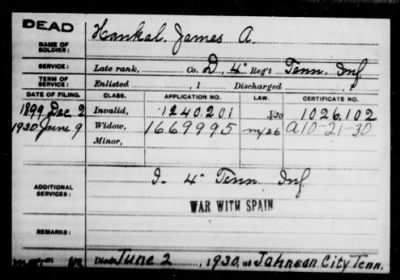 DEAD
NAME OF SOLDIER: Hankal, James A.
SERVICE: Late rank, Co. D, 4" Reg't Tenn. Inf
TERM OF SERVICE: Enlisted , 1 Discharged , 1
DATE OF FILING. CLASS. APPLICATION NO. LAW. CERTIFICATE NO.
1899 Dec 2 Invalid, 1240201 1026.102
1930 June 9 Widow, 1669995 A10-21-30
Minor,
ADDITIONAL SERVICES: I- 4" Tenn. Inf
WAR WITH SPAIN
REMARKS:
Died June 2, 1930, at Johnson City Tenn.